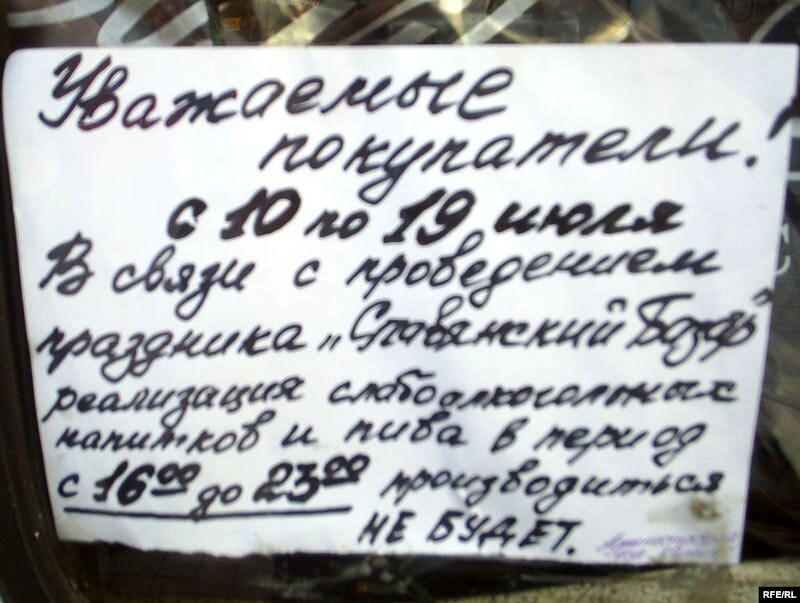 Уважаемые
покупатели!
с 10 по 19 июля
В связи с проведением
праздника „Славянский Базар"
реализация слабоалкогольных
напитков и пива в период
с 16⁰⁰ до 23⁰⁰ производиться
НЕ БУДЕТ.
RFE/RL